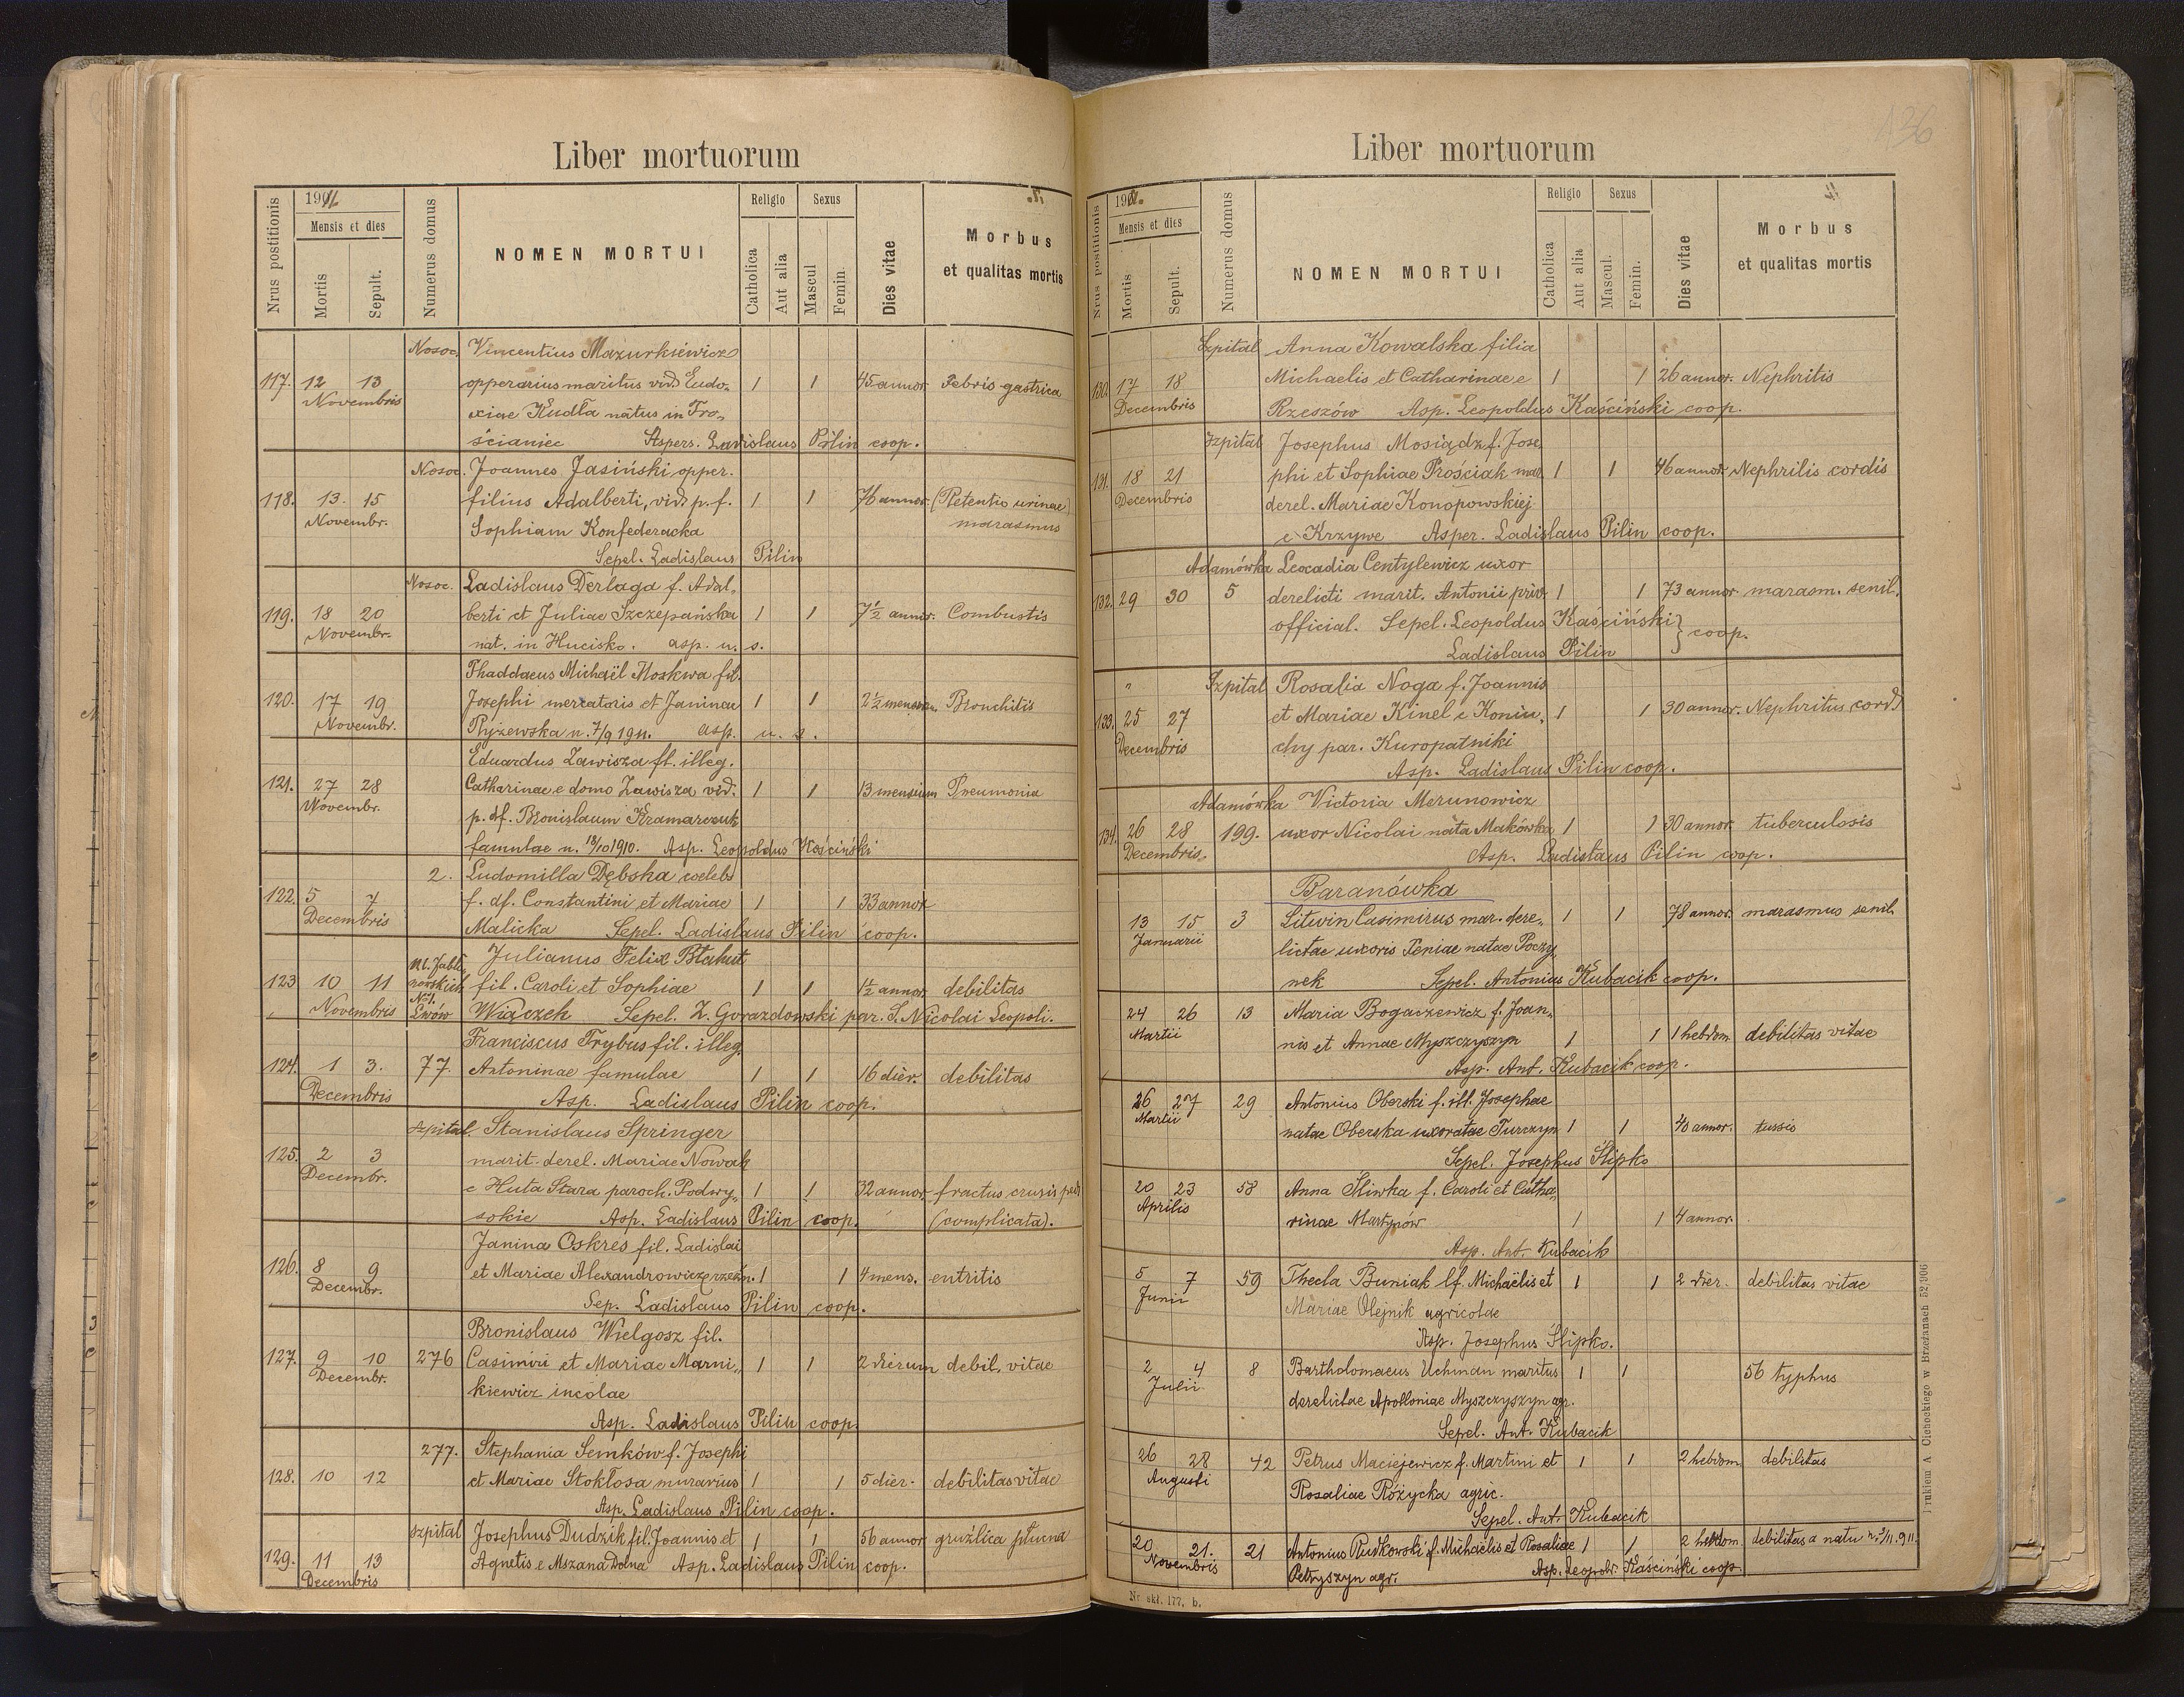 136
Liber mortuorum
Nrus postitionis
1911.
Mensis et dies
Mortis
Sepult.
Numerus domus
NOMEN MORTUI
Religio
Catholica
Aut alia
Sexus
Mascul
Femin.
Dies vitae
Morbus
et qualitas mortis
Nosoc. Vincentius Mazurkiewicz
117. 12 13 opperarius maritus vid. Eudo- 1 1 45 annor. Febris gastrica
Novembris xiae Kudła natus in Tro-
ścianiec Aspers. Ladislaus Pilin coop.
Nosoc. Joannes Jasiński opper.
118. 13. 15 filius Adalberti, vid. p. f. 1 1 76 annor. (Retentio urinae)
Novembr. Sophiam Konfederacka marasmus
Sepel. Ladislaus Pilin
Nosoc. Ladislaus Derlaga f. Adal-
119. 18 20 berti et Juliae Szczepańska 1 1 7½ annor. Combustis
Novembr. nat. in Hucisko. asp. u. s.
Thaddaeus Michaël Moskwa fil.
120. 17 19 Josephi mercatoris et Janinae 1 1 2½ mensium Bronchitis
Novembr. Ryżewska n. 7/9 1911. asp. u. s.
Eduardus Zawisza fl. illeg.
121. 27 28 Catharinae e domo Zawisza vid. 1 1 13 mensium Pneumonia
Novembr. p. df. Bronislaum Kramarczuk
famulae n. 13/10 1910. Asp. Leopoldus Kaściński
2. Ludomilla Dębska coelebs
122. 5 7 f. df. Constantini et Mariae 1 1 33 annor
Decembris Malicka Sepel. Ladislaus Pilin coop.
Ul. Jabło- Julianus Felix Błahut
123 10 11 nowskich fil. Caroli et Sophiae 1 1 1½ annor. debilitas
Novembris N. 1. Lwów Wiączek Sepel. Z. Gorazdowski par. S. Nicolai Leopoli.
Franciscus Trybus fil. illeg.
124. 1 3. 77. Antoninae famulae 1 1 16 dier. debilitas
Decembris Asp. Ladislaus Pilin coop.
szpital. Stanislaus Springer
125. 2 3 marit. derel. Mariae Nowak
Decembr. e Huta Stara paroch. Podwy- 1 1 32 annor fractus cruris
sokie Asp. Ladislaus Pilin coop. (complicata).
Janina Oskres fil. Ladislai
126. 8 9 et Mariae Alexandrowicz 1 1 4 mens. entritis
Decembr. Sep. Ladislaus Pilin coop.
Bronislaus Wielgosz fil.
127. 9 10 276 Casimiri et Mariae Marni- 1 1 2 dierum debil. vitae
Decembr. kiewicz incolae
Asp. Ladislaus Pilin coop.
277. Stephania Semków f. Josephi
128. 10 12 et Mariae Stoklosa murarius 1 1 5 dier. debilitas vitae
Asp. Ladislaus Pilin coop.
szpital Josephus Dudzik fil. Joannis et 1 1 56 annor gruźlica płucna
129. 11 13 Agnetis e Mszana Dolna Asp. Ladislaus Pilin coop.
Decembris
Liber mortuorum
Nrus postitionis
1911.
Mensis et dies
Mortis
Sepult.
Numerus domus
NOMEN MORTUI
Religio
Catholica
Aut alia
Sexus
Mascul.
Femin.
Dies vitae
Morbus
et qualitas mortis
Szpital Anna Kowalska filia
130. 17 18 Michaelis et Catharinae e 1 1 26 annor. Nephritis
Decembris Rzeszów Asp. Leopoldus Kaściński coop.
Szpital Josephus Mosiądz f. Jose-
131. 18 21 phi et Sophiae Prościak mar. 1 1 46 annor Nephrilis cordis
Decembris derel. Mariae Konopowskiej
e Krzywe Asper. Ladislaus Pilin coop.
Adamówka Leocadia Centylewicz uxor
132. 29 30 5 derelicti marit. Antonii priv. 1 1 73 annor marasm. senil.
official. Sepel. Leopoldus Kaściński } coop.
Ladislaus Pilin
" Szpital Rosalia Noga f. Joannis
133. 25 27 et Mariae Kinel e Koniu- 1 1 30 annor. Nephritus cord.
Decembris chy par. Kuropatniki
Asp. Ladislaus Pilin coop.
Adamówka Victoria Merunowicz
134. 26 28 199. uxor Nicolai nata Makówka 1 1 30 annor. tuberculosis
Decembris. Asp. Ladislaus Pilin coop.
Baranówka
13 15 3 Litwin Casimirus mar. dere- 1 1 78 annor. marasmus senil.
Januarii lictae uxoris Teniae natae Poczy-
nek Sepel. Antonius Kubacik coop.
24 26 13 Maria Bogaczewicz f. Joan-
Martii nis et Annae Myszczyszyn 1 1 1 hebdom debilitas vitae
Asp. Ant. Kubacik coop.
26 27 29 Antonius Oberski f. ill. Josephae
Martii natae Oberska uxoratae Turczyn 1 1 40 annor. tussis
Sepel. Josephus Ślipko
20 23 58 Anna Śliwka f. Caroli et Catha-
Aprilis rinae Martynów 1 1 4 annor.
Asp. Ant. Kubacik
5 7 59 Thecla Buniak lf. Michaëlis et 1 1 2 dier. debilitas vitae
Junii Mariae Olejnik agricolae
Asp. Josephus Ślipko.
2 4 8 Bartholomaeus Uchman maritus 1 1 56 typhus
Julii derelictae Apolloniae Myszczyszyn agr.
Sepel. Ant. Kubacik
26 28 42 Petrus Maciejewicz f. Martini et 1 1 2 hebdom debilitas
Augusti Rosaliae Różycka agric.
Sepel. Ant. Kubacik
20 21. 21 Antonius Rudkowski f. Michaëlis et Rosaliae 1 1 2 hebdom. debilitas a natu
Novembris Petryszyn agr. Asp. Leopold. Kaściński coop.
Nr. skł. 177, b.
Drukiem A Ciehockiego w Brzeżanach 52/906